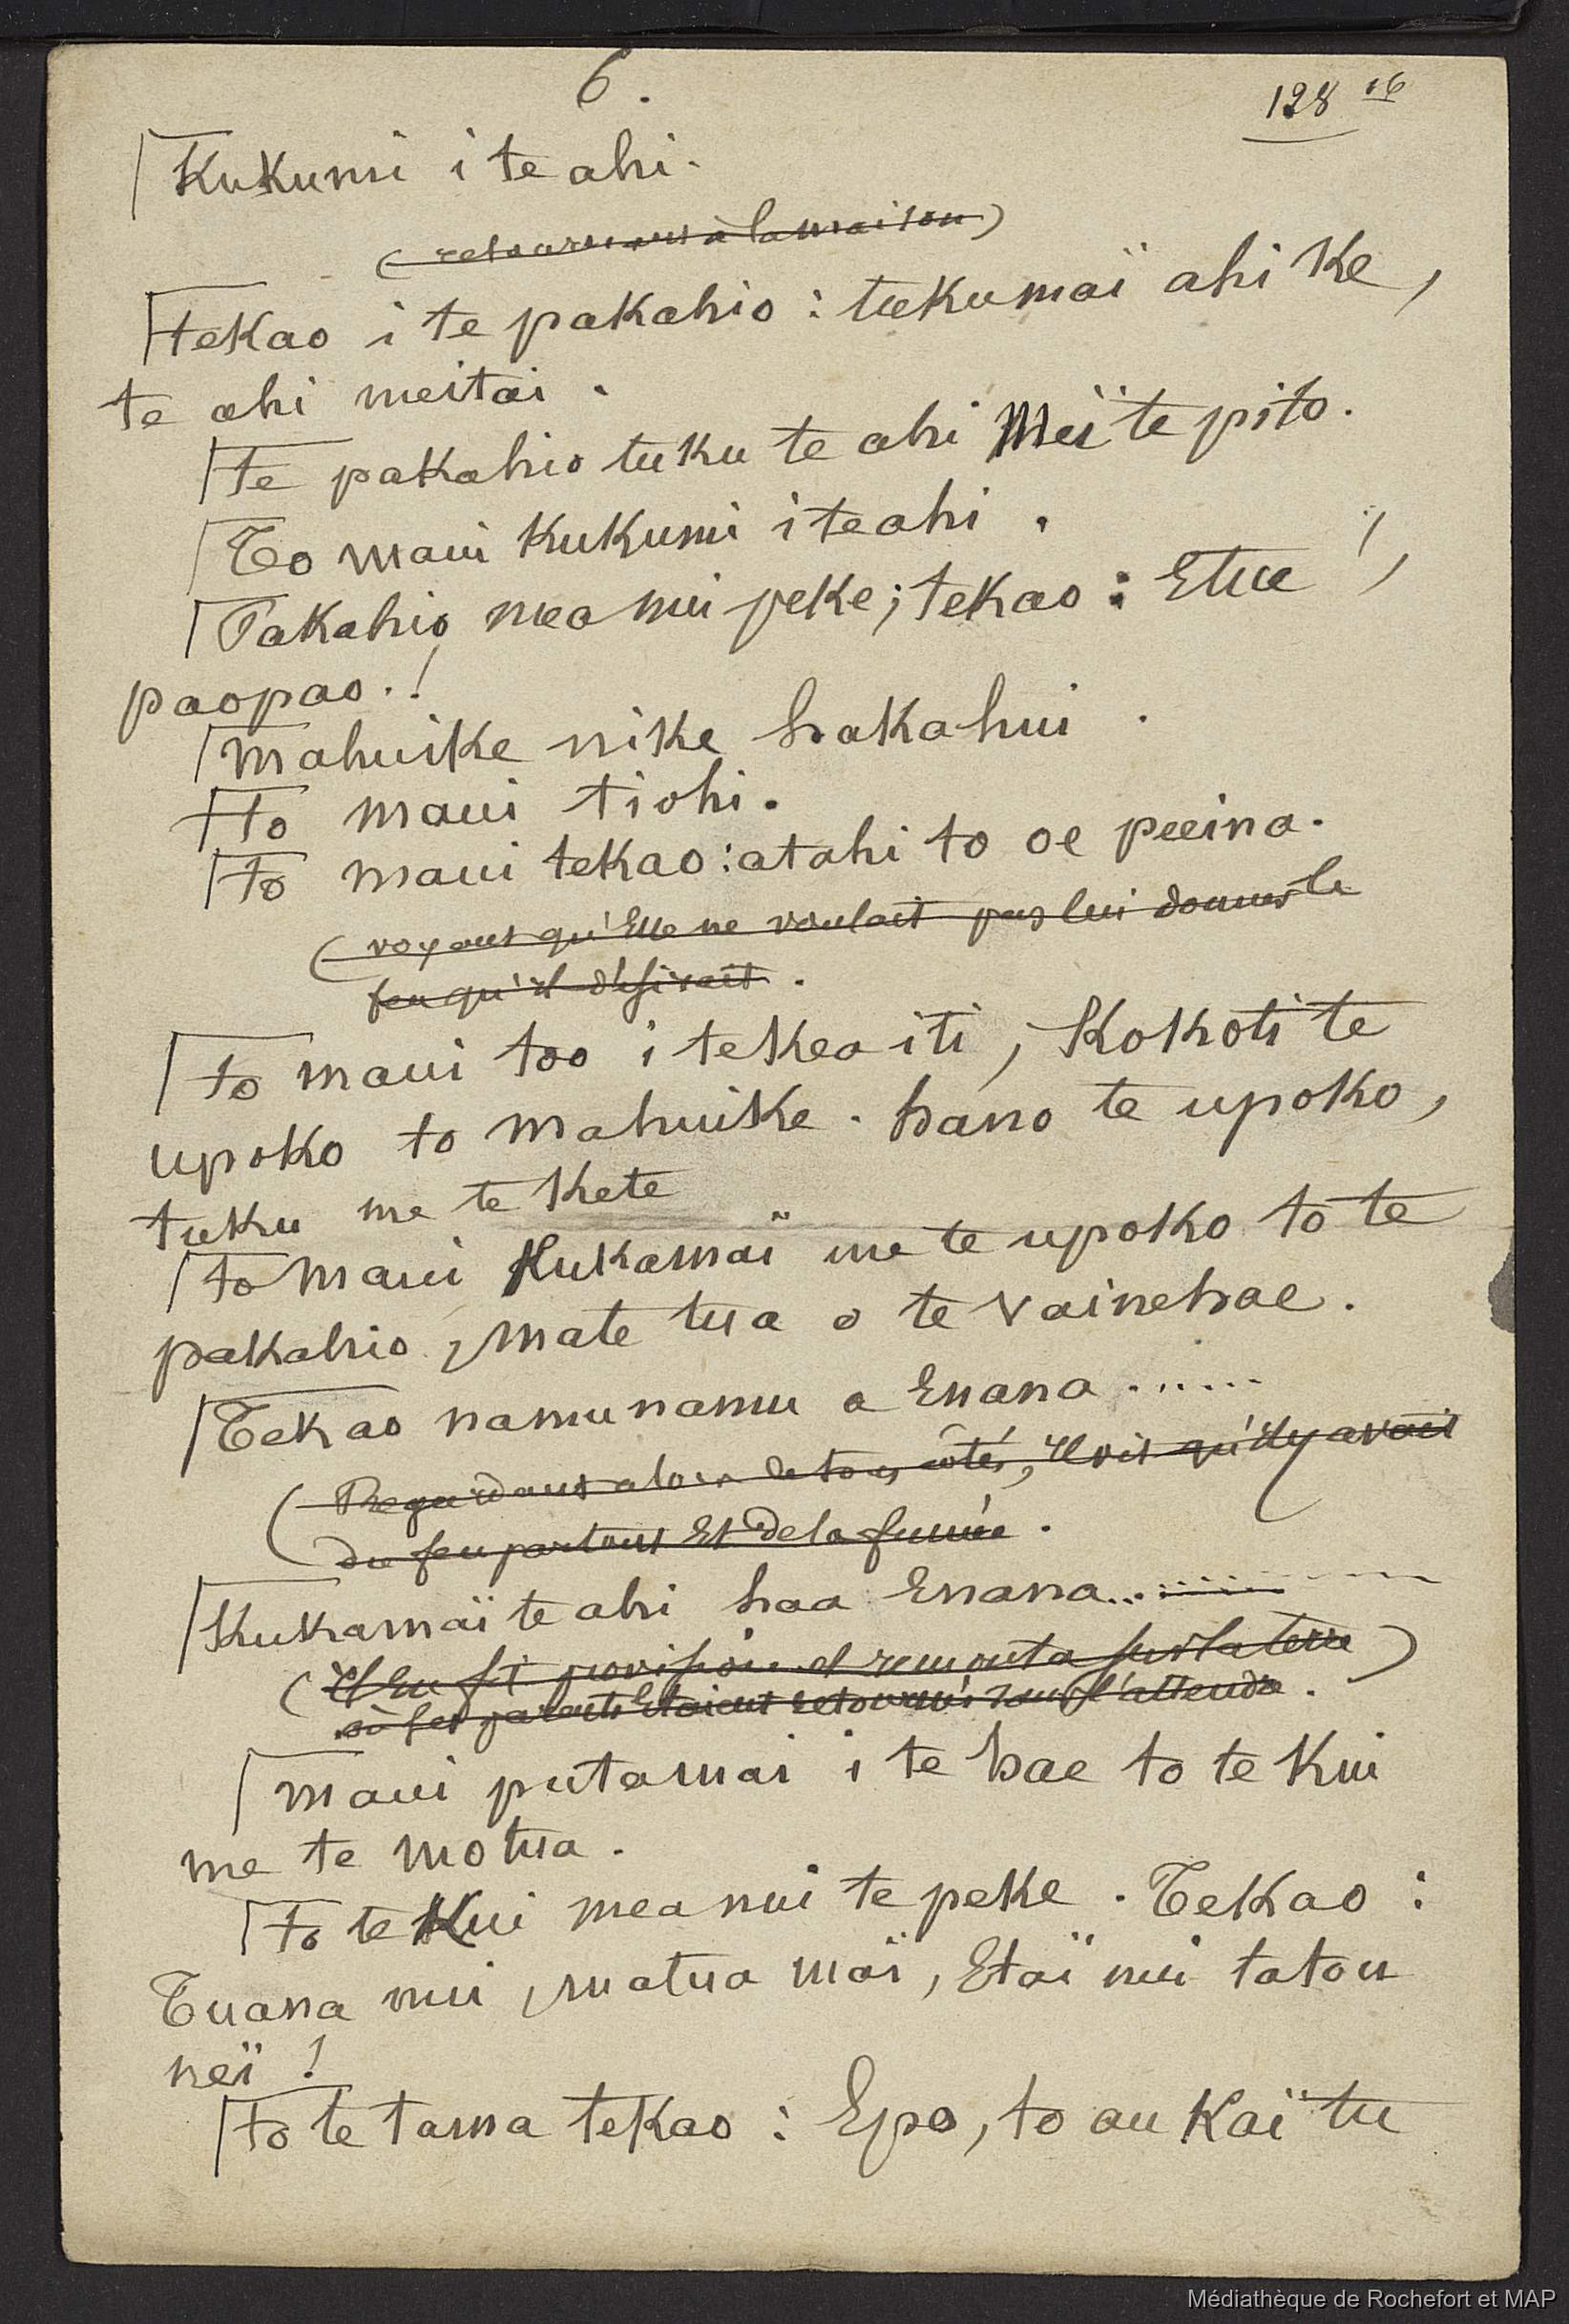 6.
128 16
Kukumi i te ahi.
(retournons à la maison)
tekao i te pakahio : tukumaï ahi ke,
te ahi meitai.
te pakahio tuku te ahi Meï te pito.
To maui kukumi i te ahi.
Pakahio mea nui peke ; tekao : Etue !,
paopao. !
Mahuike nike hakahui.
to maui tiohi.
to maui tekao : atahi to oe peeina.
(voyant qu'Elle ne voulait pas lui donner le
feu qu'il désirait.
to maui too i te kea iti, Kokoti te
upoko to mahuike. hano te upoko,
tuku me te kete
to maui Kukamaï me te upoko to te
pakahio, mate tua o te vainehae.
Tekao namunamu a Enana ......
(Regardant alors de tous côtés, Il vit qu'il y avait
du feu partout Et de la fumée.
Kukamaï te ahi haa Enana.........
(Il En fit provision et remonta sur la terre)
où ses parents Etaient retournés sans l'attendre.
maui putamai i te hae to te Kui
me te motua.
to te Kui mea nui te peke. Tekao :
Tuana nui, matua maï, Etaï nui tatou
neï !
to te tama tekao : Epo, to au Kaï tu
Médiathèque de Rochefort et MAP